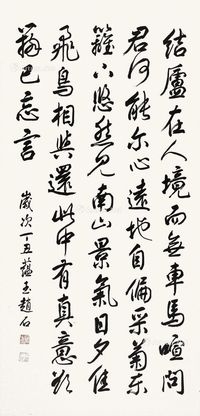 結廬在人境而無車馬喧問
君何能尔心遠地自偏采菊東
籬下悠然見南山景氣日夕佳
飛鳥相與還此中有真意欲
辯已忘言
歲次丁丑蘊玉趙石